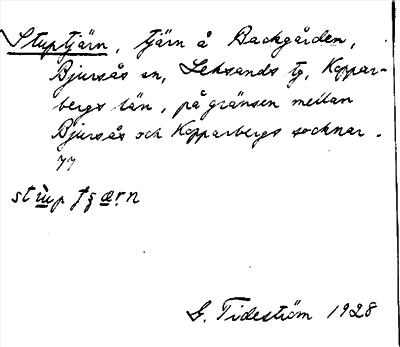 Stuptjärn, tjärn å Backgården,
Bjursås sn, Leksands tg, Koppar-
bergs län, på gränsen mellan
Bjursås och Kopparbergs socknar.
77
G. Tideström 1928